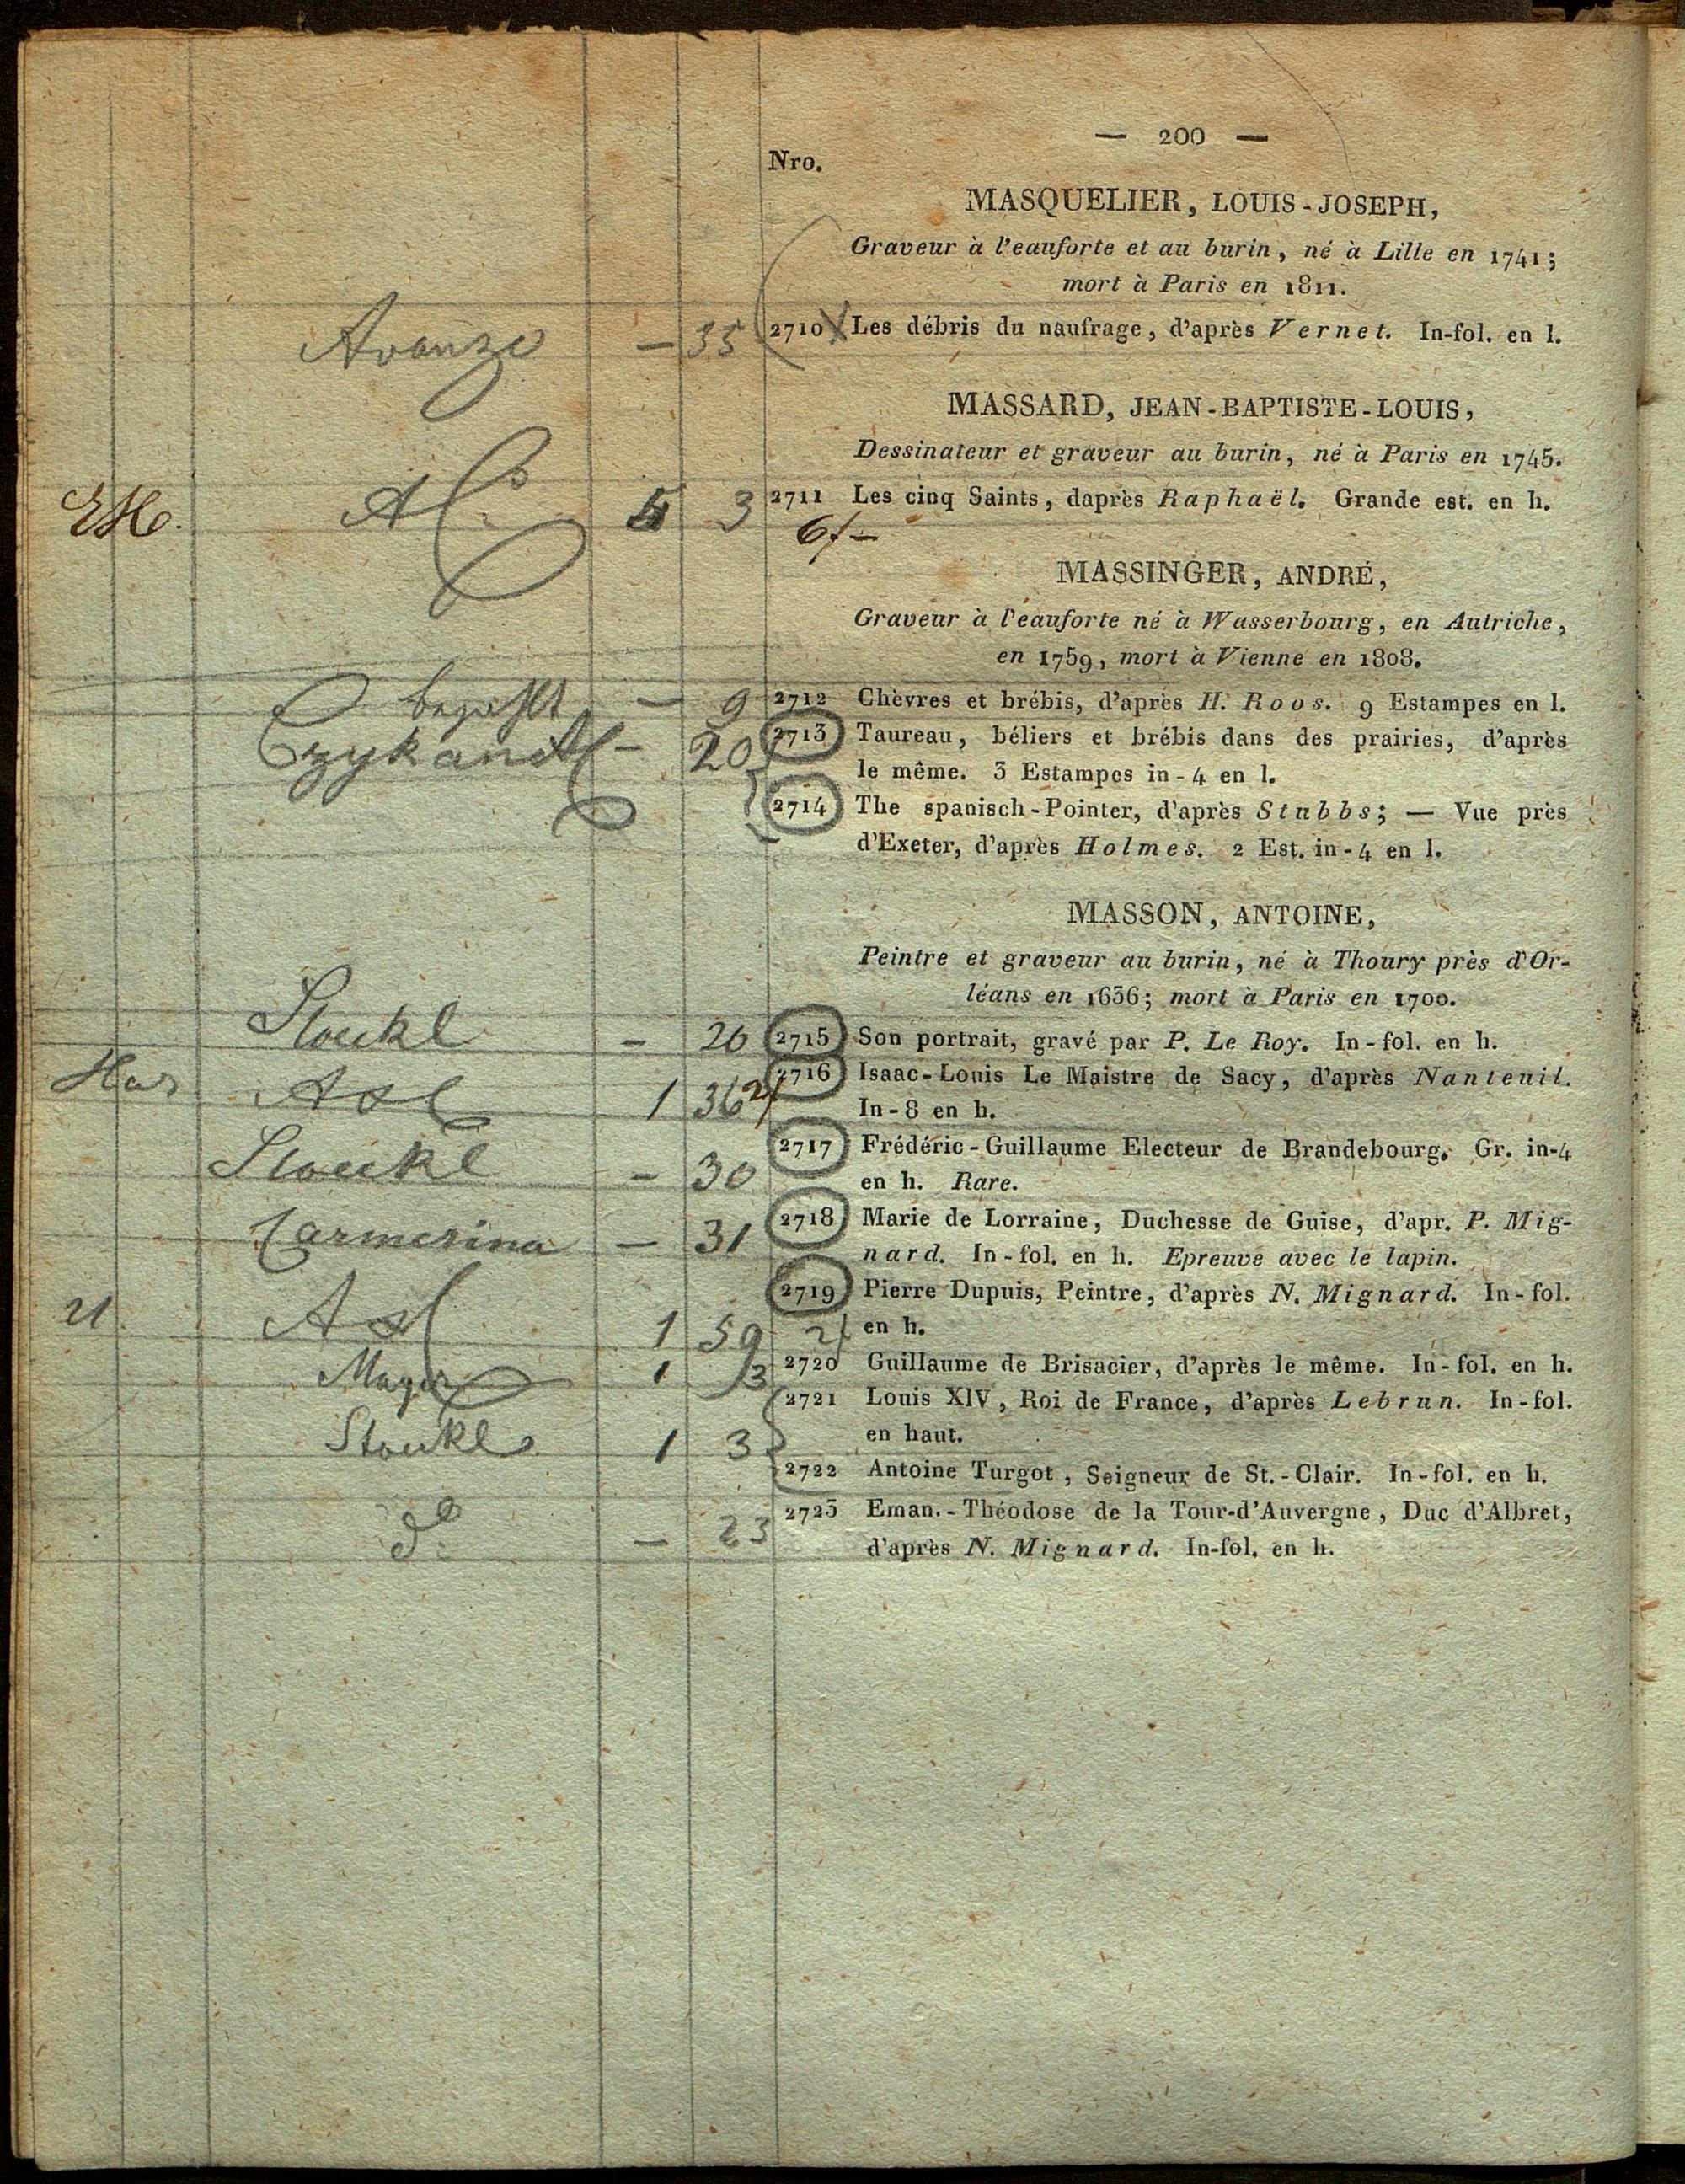 — 200 —
Nro.
MASQUELIER, LOUIS-JOSEPH,
Graveur à l'eauforte et au burin, né à Lille en 1741;
mort à Paris en 1811.
Avanzo — 35 2710 Les débris du naufrage, d'après Vernet. In-fol. en l.
MASSARD, JEAN-BAPTISTE-LOUIS,
Dessinateur et graveur au burin, né à Paris en 1745.
3 2711 Les cinq Saints, daprès Raphaël. Grande est. en h.
MASSINGER, ANDRÉ,
Graveur à l'eauforte né à Wasserbourg, en Autriche,
en 1759, mort à Vienne en 1808.
— 9 2712 Chèvres et brébis, d'après H. Roos. 9 Estampes en l.
— 20 2713 Taureau, béliers et brébis dans des prairies, d'après
le même. 3 Estampes in-4 en l.
2714 The spanisch-Pointer, d'après Stubbs; — Vue près
d'Exeter, d'après Holmes. 2 Est. in-4 en l.
MASSON, ANTOINE,
Peintre et graveur au burin, né à Thoury près d'Or-
léans en 1636; mort à Paris en 1700.
Stoeckl — 26 2715 Son portrait, gravé par P. Le Roy. In-fol. en h.
1 36 2716 Isaac-Louis Le Maistre de Sacy, d'après Nanteuil.
In-8 en h.
Stoeckl — 30 2717 Frédéric-Guillaume Electeur de Brandebourg. Gr. in-4
en h. Rare.
— 31 2718 Marie de Lorraine, Duchesse de Guise, d'apr. P. Mig-
nard. In-fol. en h. Epreuve avec le lapin.
2719 Pierre Dupuis, Peintre, d'après N. Mignard. In-fol.
1 59 en h.
Mayer 1 3 2720 Guillaume de Brisacier, d'après le même. In-fol. en h.
2721 Louis XIV, Roi de France, d'après Lebrun. In-fol.
Stoeckl 1 3 en haut.
2722 Antoine Turgot, Seigneur de St.-Clair. In-fol. en h.
do — 23 2723 Eman.-Théodose de la Tour-d'Auvergne, Duc d'Albret,
d'après N. Mignard. In-fol. en h.